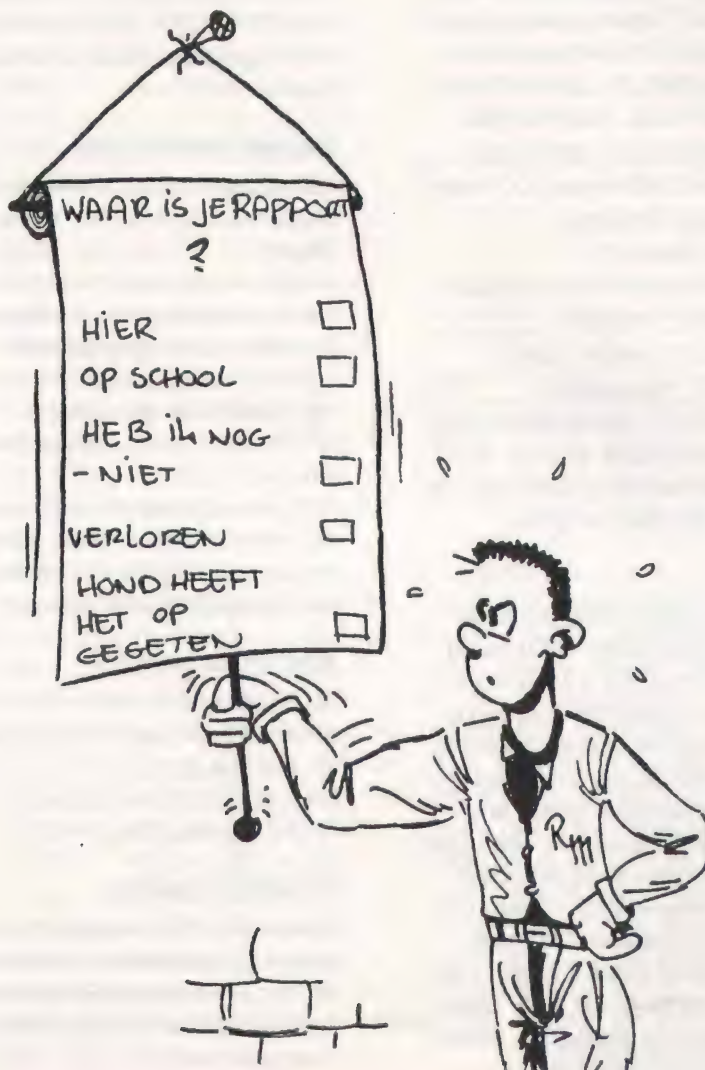 WAAR iS JE RAPPORT
?
HiER
OP SCHOOL
HEB ik NOG
- NiET
VERLOREN
HOND HEEFT
HET OP
GEGETEN
Rm